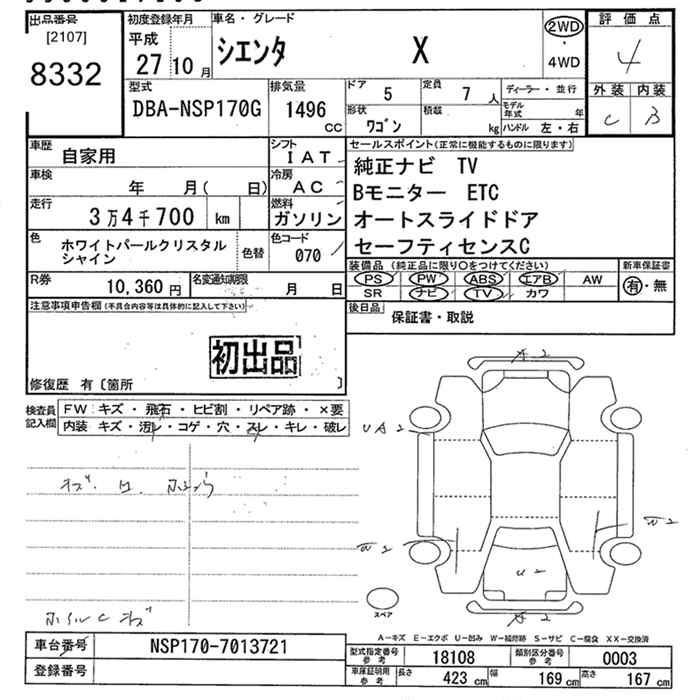 出品番号
[2107]
8332
初度登録年月
平成
27 10 月
車名・グレード
シエンタ X
2WD
・
4WD
評価点
4
外装 内装
C B
型式
DBA-NSP170G
排気量
1496
CC
ドア 5
定員 7 人
形状 ワゴン
積載 kg
ディーラー・並行
モデル年式 年
ハンドル 左・右
車歴 自家用
シフト IAT
車検 年 月( 日)
冷房 AC
走行 3万4千700 km
燃料 ガソリン
色 ホワイトパールクリスタル
シャイン
色替
色コード 070
R券 10,360 円
名変通知期限 月 日
セールスポイント(正常に機能するものに限ります)
純正ナビ TV
Bモニター ETC
オートスライドドア
セーフティセンスC
装備品 (純正品に限り○をつけてください)
PS PW ABS エアB AW
SR ナビ TV カワ
新車保証書
有・無
後日品 保証書・取説
注意事項申告欄(不具合内容等は具体的に記入して下さい)
初出品
修復歴 有〔箇所 〕
検査員
記入欄
FW: キズ・飛石・ヒビ割・リペア跡・×要
内装 キズ・汚レ・コゲ・穴・スレ・キレ・破レ
A2
UA2
W2
W2
U2
A2
スペア
ホイルCキズ
A−キズ E−エクボ U−凹み W−補修跡 S−サビ C−腐食 XX−交換済
車台番号 NSP170-7013721
登録番号
型式指定番号
参考
18108
類別区分番号
参考
0003
車庫証明用
参考
長さ 423 cm
幅 169 cm
高さ 167 cm